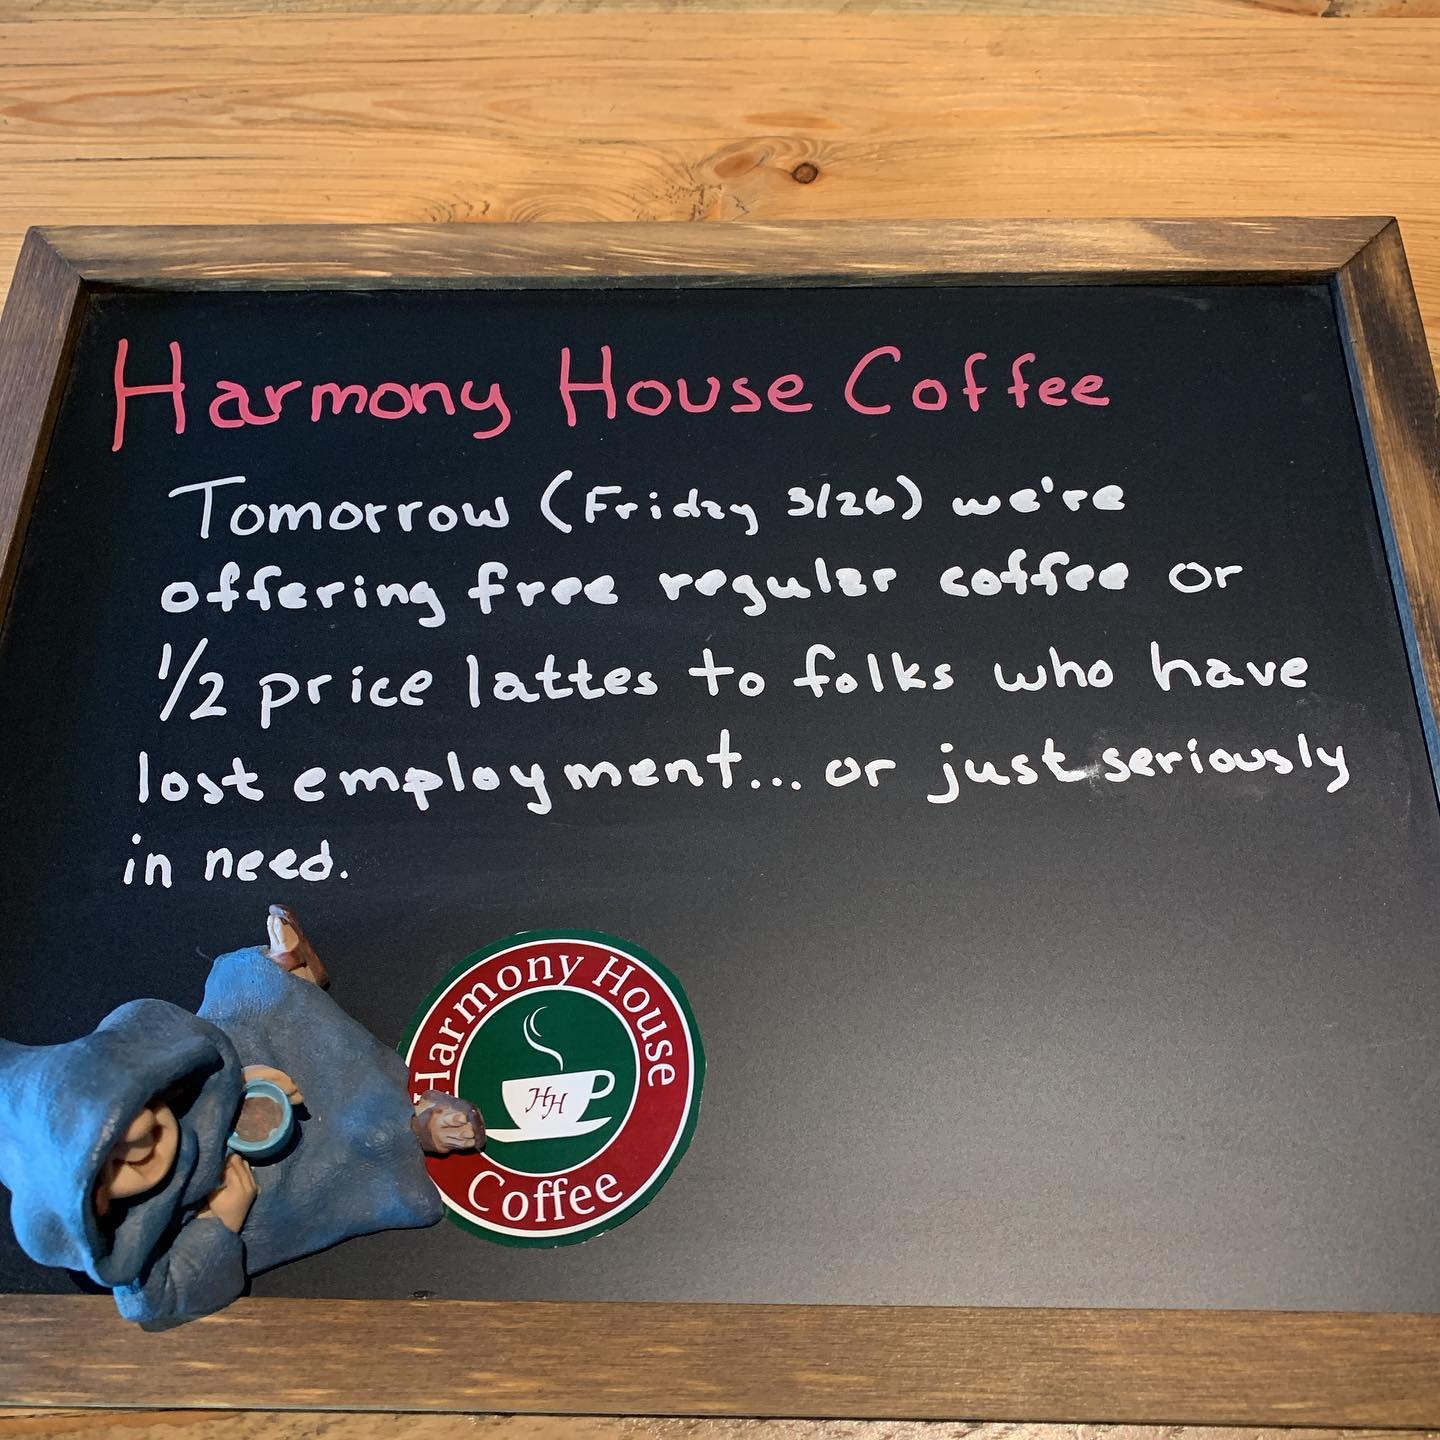 Harmony House Coffee
Tomorrow (Friday 3/26) we're
offering free regular coffee or
1/2 price lattes to folks who have
lost employment... or just seriously
in need.
Harmony House
HH
Coffee